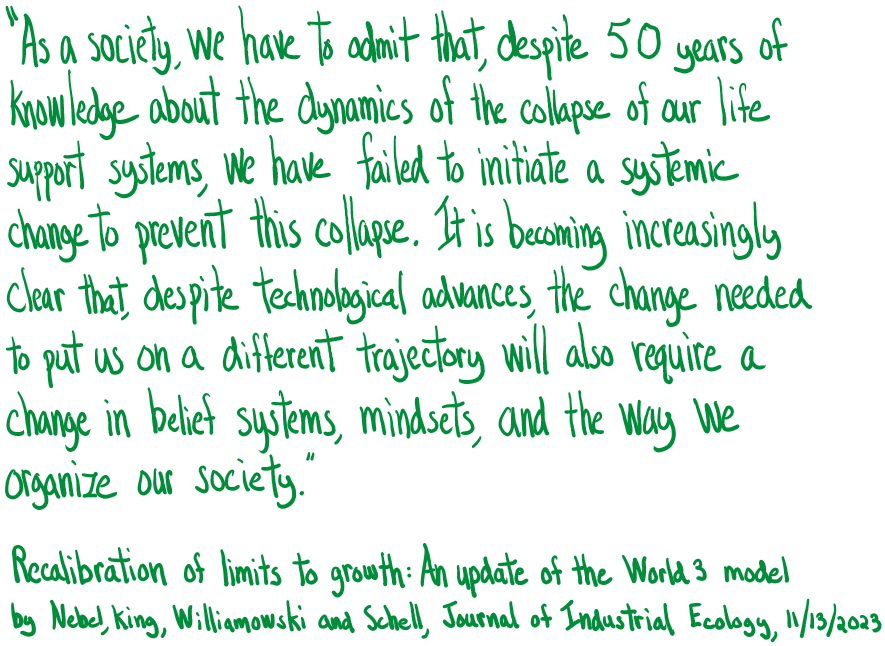 "As a society, we have to admit that, despite 50 years of
knowledge about the dynamics of the collapse of our life
support systems, we have failed to initiate a systemic
change to prevent this collapse. It is becoming increasingly
clear that, despite technological advances, the change needed
to put us on a different trajectory will also require a
change in belief systems, mindsets, and the way we
organize our society."
Recalibration of limits to growth: An update of the World 3 model
by Nebel, King, Williamowski and Schell, Journal of Industrial Ecology, 11/13/2023